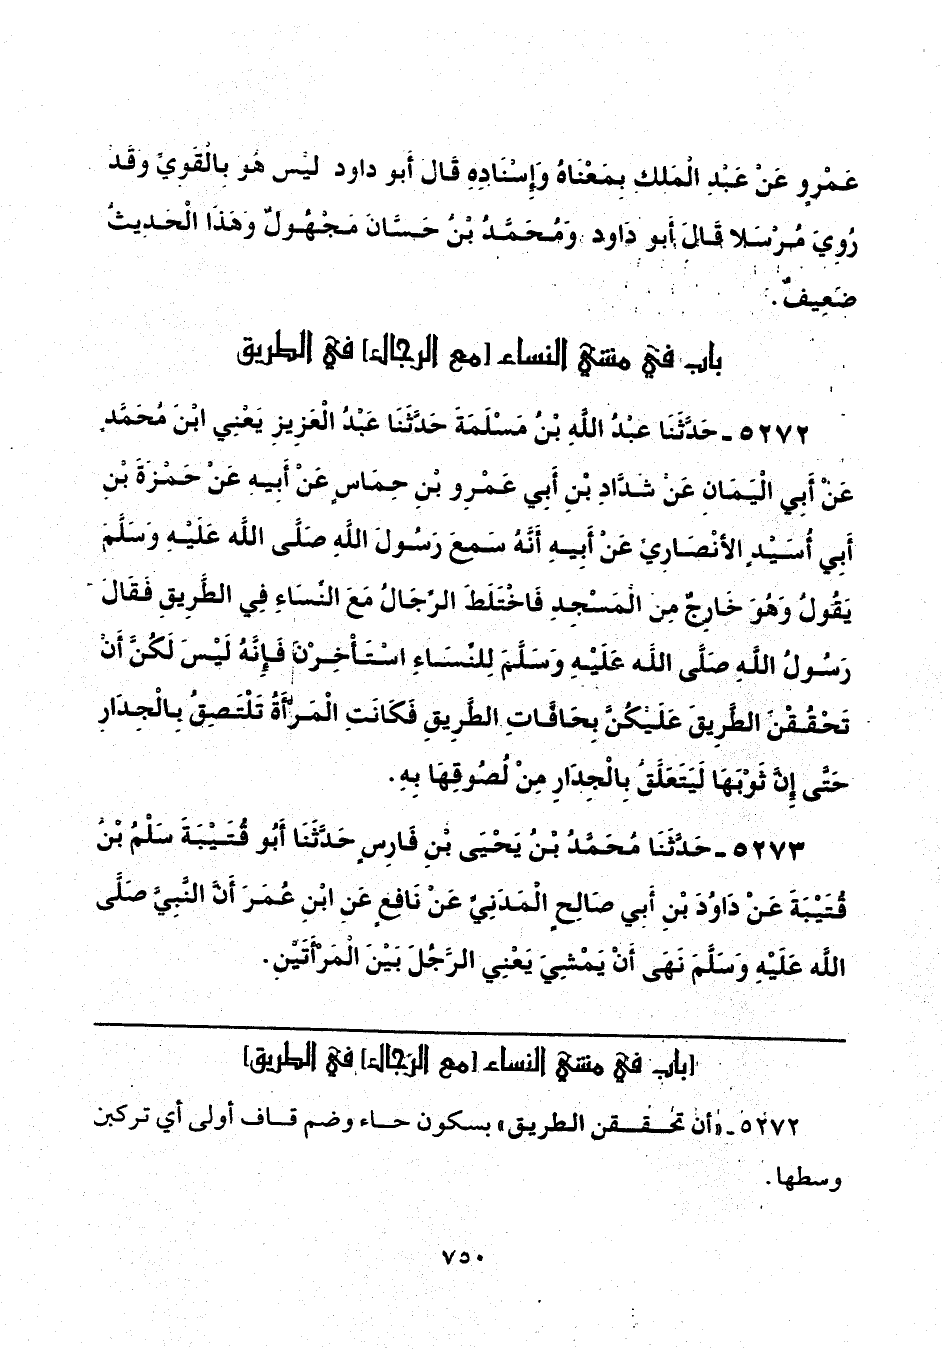 عَمْرٍو عَنْ عَبْدِ الْمَلكِ بِمَعْنَاهُ وَإِسْنَادِهِ قَالَ أَبو داود ليْس هُو بِالْقَوِيِّ وَقَدْ
رُوِيَ مُرْسَلا قَالَ أَبو دَاود وَمُحَمَّدُ بْنُ حَسَّانَ مَجْهُولٌ وَهَذَا الْحَدِيثُ
ضَعِيفٌ.
باب في مشي النساء [مع الرجال] في الطريق
٥٢٧٢ ـ حَدَّثَنَا عبْدُ اللَّهِ بْنُ مَسْلَمَةَ حَدَّثَنَا عَبْدُ الْعَزِيزِ يَعْنِي ابْنَ مُحَمَّدٍ
عَنْ أَبِي الْيَمَانِ عَنْ شَدَّادِ بْنِ أَبي عَمْرِو بْنِ حِمَاسٍ عَنْ أَبيهِ عَنْ حَمْزَةَ بْنِ
أَبي أُسَيْدٍ الأَنْصَارِيِّ عَنْ أَبيهِ أَنَّهُ سَمِعَ رَسُولَ اللَّهِ صَلَّى اللَّه عَلَيْهِ وَسَلَّمَ
يَقُولُ وَهُوَ خَارِجٌ مِنَ الْمَسْجِدِ فَاخْتَلَطَ الرِّجَالُ مَعَ النِّسَاءِ فِي الطَّرِيقِ فَقَالَ
رَسُولُ اللَّهِ صَلَّى اللَّه عَلَيْهِ وَسَلَّمَ لِلنِّسَاءِ اسْتَأْخِرْنَ فَإِنَّهُ لَيْسَ لَكُنَّ أَنْ
تَحْقُقْنَ الطَّرِيقَ عَلَيْكُنَّ بِحَافَّاتِ الطَّرِيقِ فَكَانَتِ الْمَرْأَةُ تَلْتَصِقُ بِالْجِدَارِ
حَتَّى إِنَّ ثَوْبَهَا لَيَتَعَلَّقُ بِالْجِدَارِ مِنْ لُصُوقِهَا بِهِ.
٥٢٧٣ ـ حَدَّثَنَا مُحَمَّدُ بْنُ يَحْيَى بْنِ فَارِسٍ حَدَّثَنَا أَبُو قُتَيْبَةَ سَلْمُ بْنُ
قُتَيْبَةَ عَنْ دَاوُدَ بْنِ أَبي صَالِحٍ الْمَدَنِيِّ عَنْ نَافِعٍ عَنِ ابْنِ عُمَرَ أَنَّ النَّبِيَّ صَلَّى
اللَّه عَلَيْهِ وَسَلَّمَ نَهَى أَنْ يَمْشِيَ يَعْنِي الرَّجُلَ بَيْنَ الْمَرْأَتَيْنِ.
[باب في مشي النساء [مع الرّجال] في الطريق]
٥٢٧٢ ـ «أن تحـقـقن الطريق» بسكون حاء وضم قاف أولى أي تركبن
وسطها.
٧٥٠